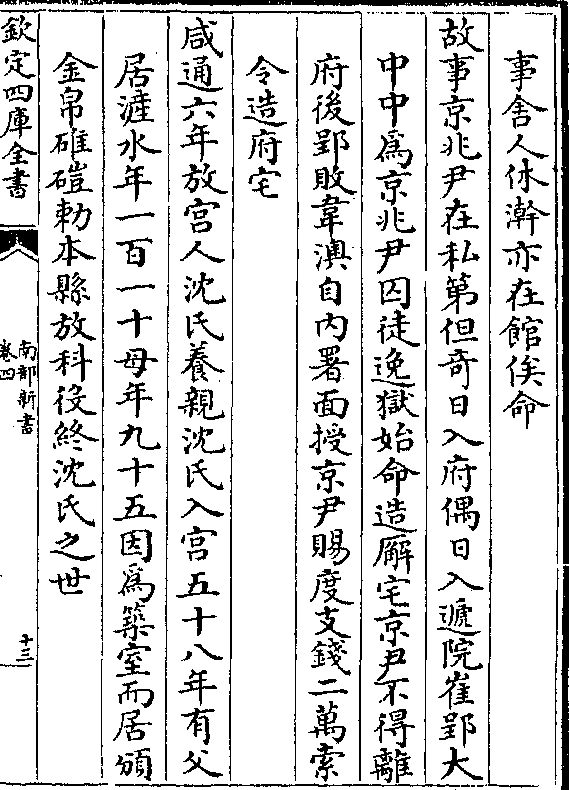 事舍人休澣亦在館俟命
故事京兆尹在私第但奇日入府偶日入遞院崔郢大
中中爲京兆尹囚徒逸獄始命造廨宅京尹不得離
府後郢敗韋澳自内署面授京尹賜度支錢二萬索
令造府宅
咸通六年放宫人沈氏養親沈氏入宫五十八年有父
居漄水年一百一十母年九十五因爲築室而居頒
金帛碓磑勅本縣放科役終沈氏之世
欽定四庫全書
南部新書
卷四
十三